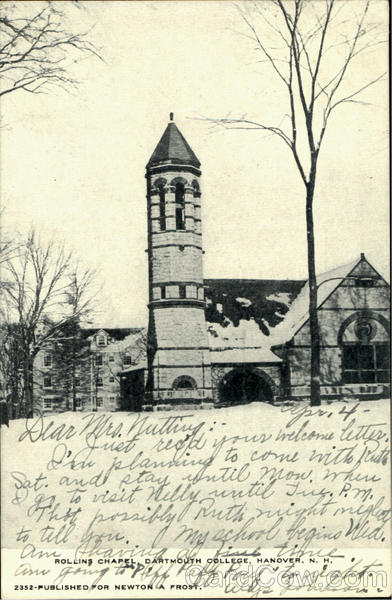 Apr. 4-
Dear Mrs. Nutting:
Just rec'd your welcome letter.
I'm planning to come with Ruth
Sat. and stay until Mon. when
I go to visit Nelly until Tue. P.M.
Tho't possibly Ruth might neglect
to tell you. My school begins Wed.
Am having a fine time
ROLLINS CHAPEL, DARTMOUTH COLLEGE, HANOVER, N. H.
am going to
2352-PUBLISHED FOR NEWTON A FROST.
CardCow.com